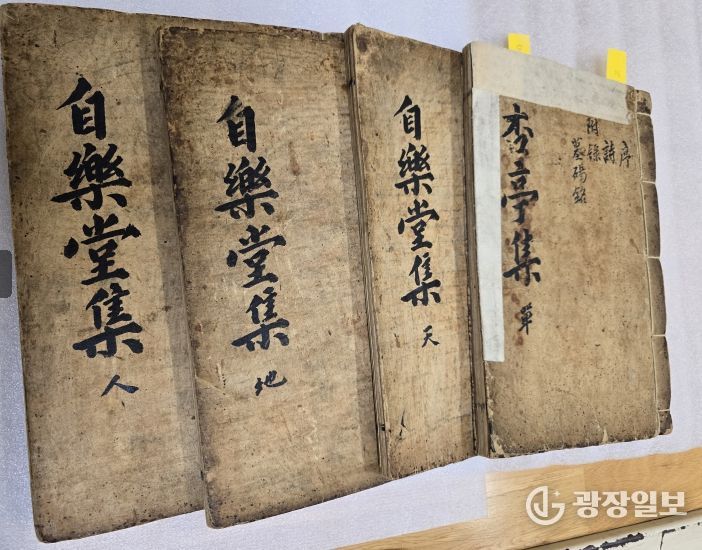 序
詩
附錄
墓碣銘
杏亭集 單
自樂堂集 天
自樂堂集 地
自樂堂集 人
광장일보